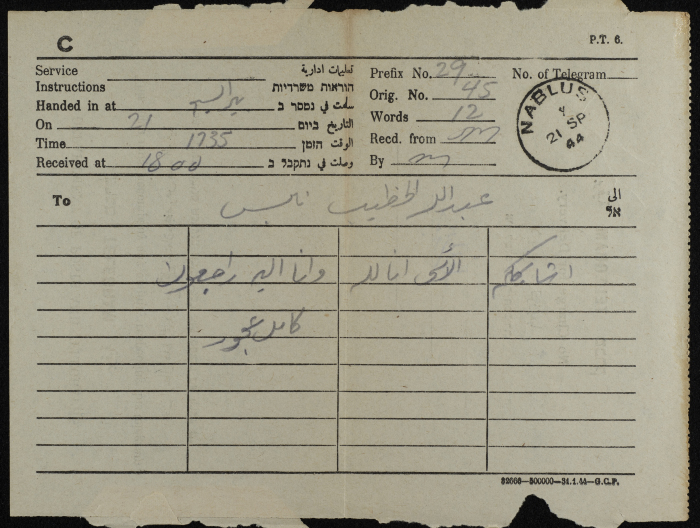 C
P.T. 6.
Service تعليمات ادارية
Instructions הוראות משרדיות
Handed in at بير السبع سلمت في נמסר ב
On 21 التاريخ ביום
Time 1735 الوقت הזמן
Received at 1800 وصلت في נתקבל ב
Prefix No. 29 No. of Telegram
Orig. No. 45
Words 12
Recd. from m
By m
NABLUS
21 SP
44
To عبدالله الخطيب نابلس الى
אל
اشاركم الأسى انا لله وانا اليه راجعون
كامل
32666—500000—31.1.44—G.C.P.